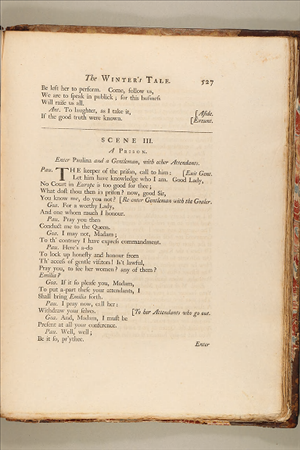 The WINTER's TALE. 527
Be left her to perform. Come, follow us,
We are to speak in publick; for this business
Will raise us all.
Ant. To laughter, as I take it, [Aside.
If the good truth were known. [Exeunt.
SCENE III.
A PRISON.
Enter Paulina and a Gentleman, with other Attendants.
Pau. THE keeper of the prison, call to him: [Exit Gent.
Let him have knowledge who I am. Good Lady,
No Court in Europe is too good for thee;
What dost thou then in prison? now, good Sir,
You know me, do you not? [Re-enter Gentleman with the Goaler.
Goa. For a worthy Lady,
And one whom much I honour.
Pau. Pray you then
Conduct me to the Queen.
Goa. I may not, Madam;
To th' contrary I have express commandment.
Pau. Here's a-do
To lock up honesty and honour from
Th' access of gentle visitors! Is't lawful,
Pray you, to see her women? any of them?
Emilia?
Goa. If it so please you, Madam,
To put a-part these your attendants, I
Shall bring Emilia forth.
Pau. I pray now, call her:
Withdraw your selves. [To her Attendants who go out.
Goa. And, Madam, I must be
Present at all your conference.
Pau. Well, well;
Be it so, pr'ythee.
Enter